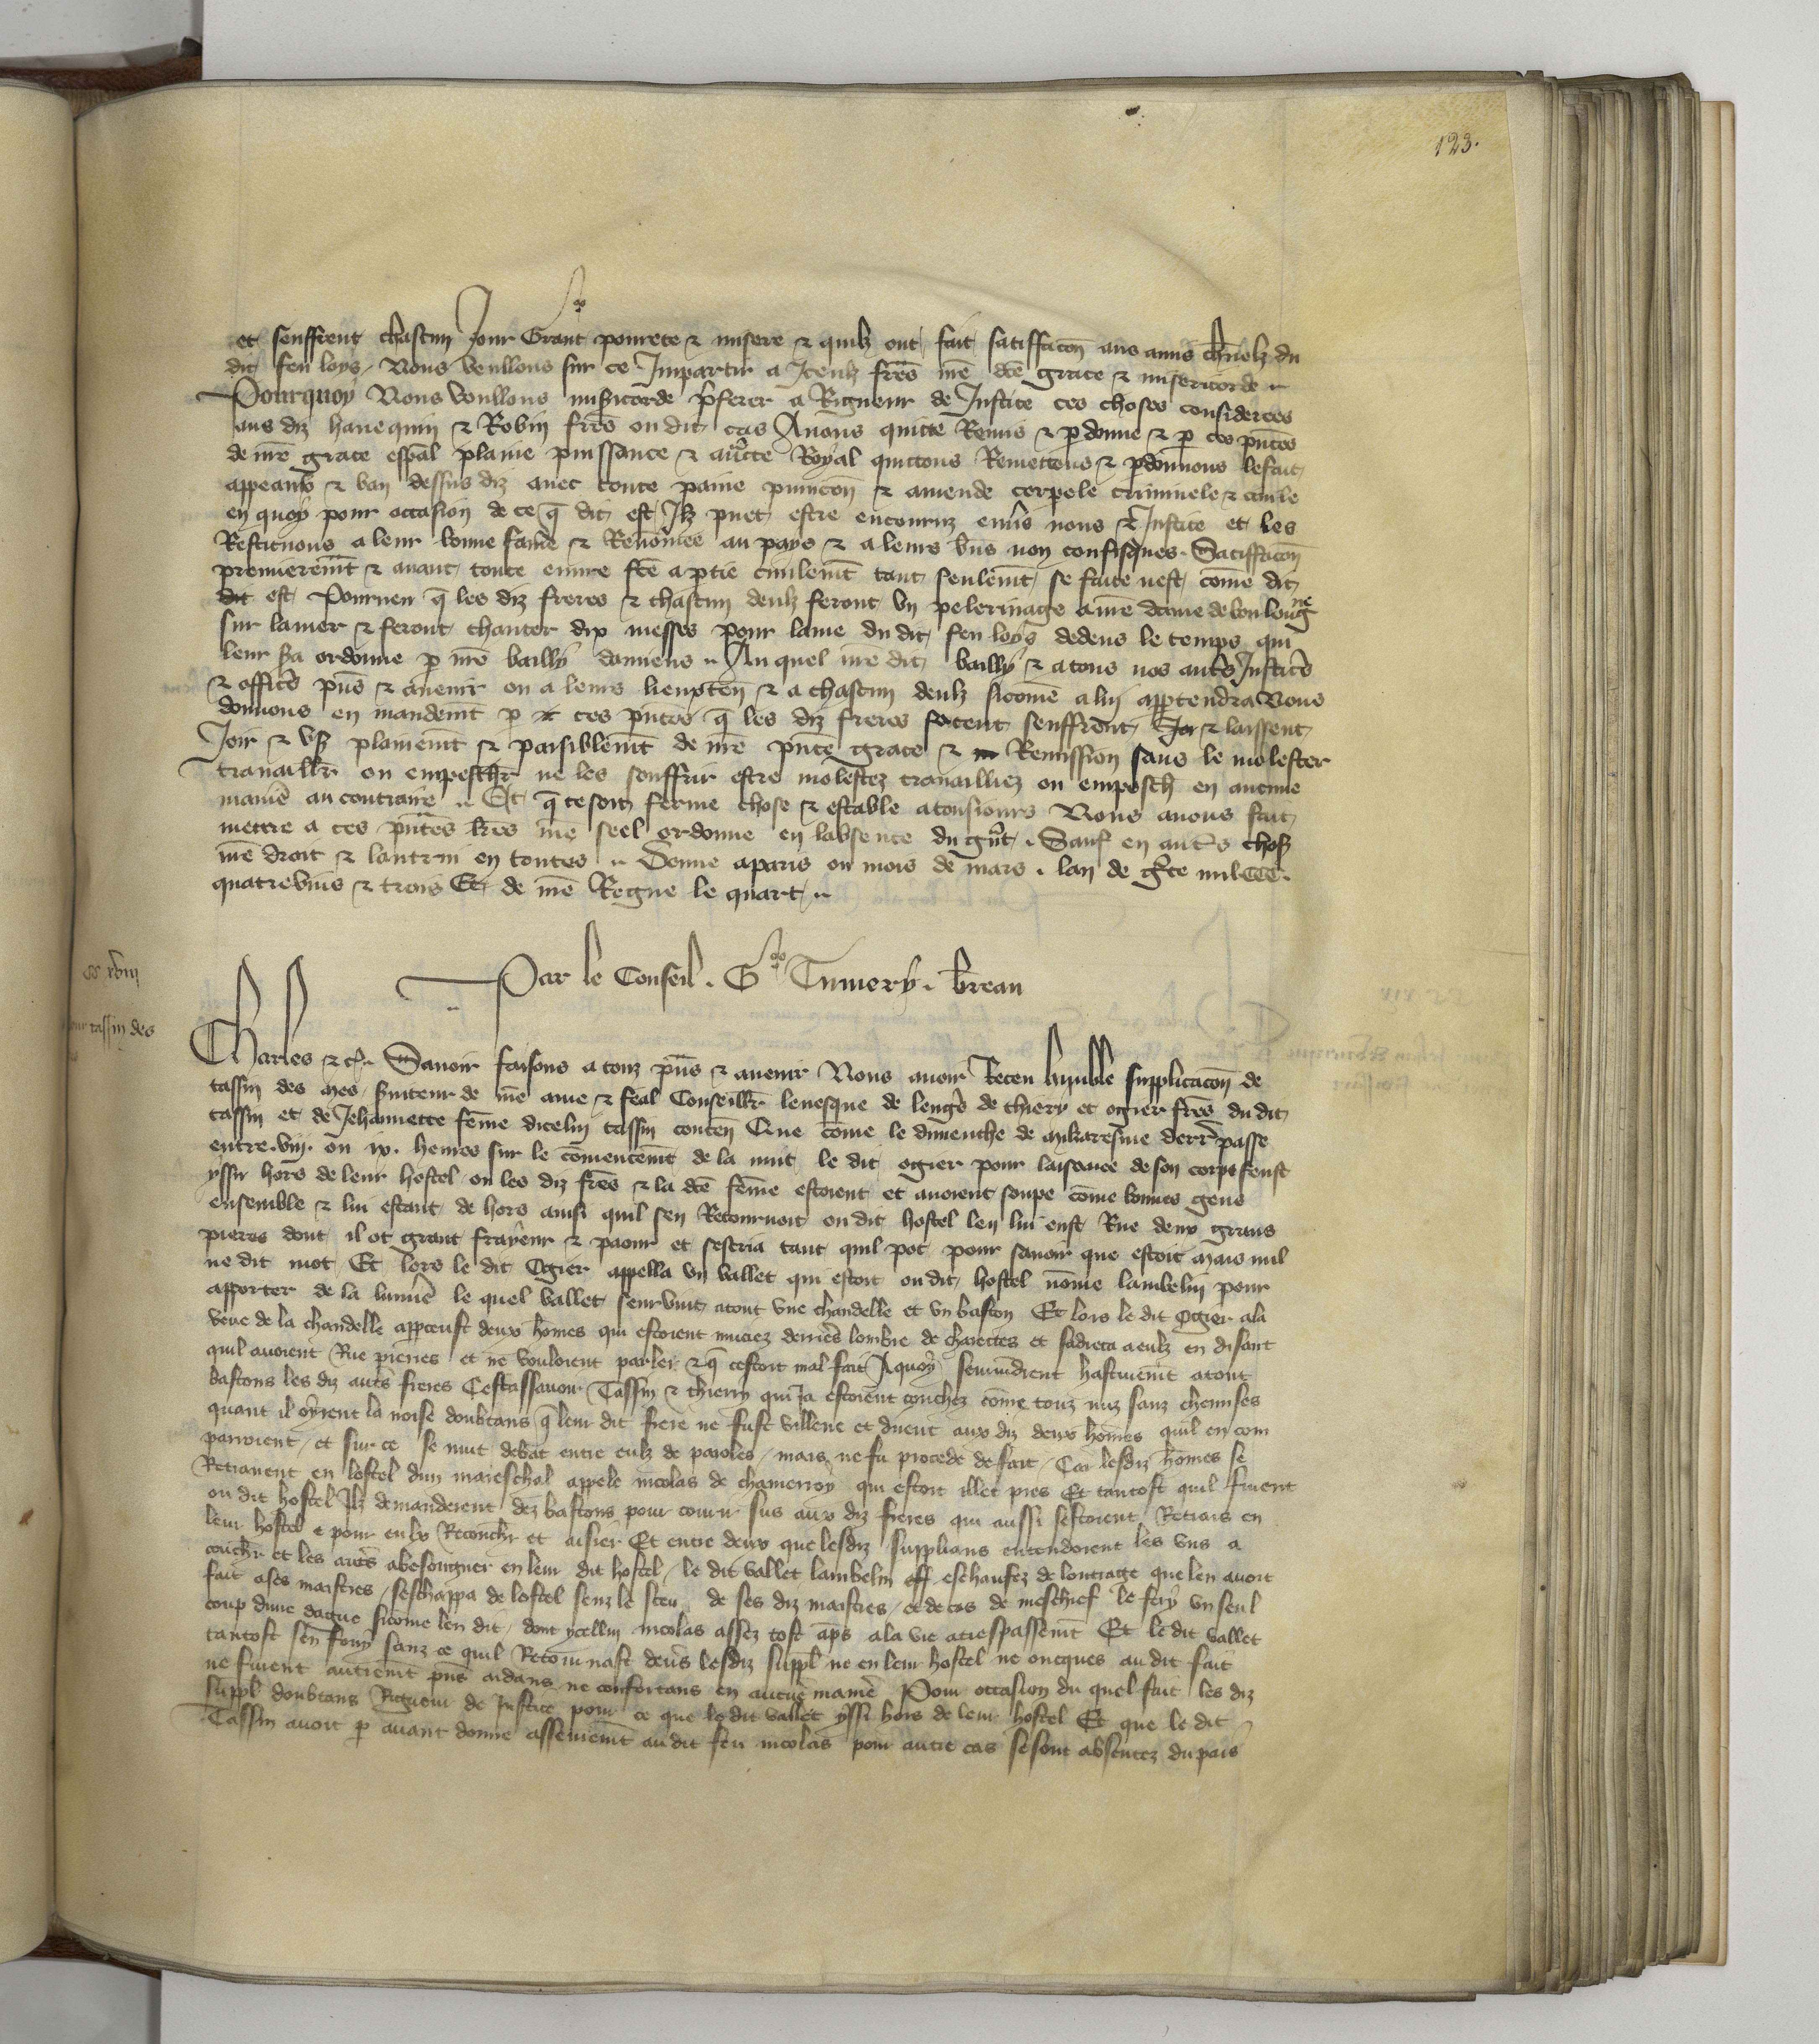 123.
et seuffrent chascun Jour Grant pourete & misere & quilz ont fait satiffacōn aus amis ch̄nelz du
dit feu loys / Nous veullons sur ce Impartir a Iceulz fr̄es nr̄e dc̄e grace & misericorde
Pourquoy Nous voullons mis̄icorde p̄ferer a Rigueur de Justice ces choses considerees
aus diz hanequin & Robin fr̄es ou dit cas Auons quicte Remis & p̄donne & p̄ ces pn̄tes
de nr̄e grace esp̄al plaine puissance & auct̄te Royal quictons Remettons & p̄donnons le fait
appeaux & ban dessus diz auec toute paine punicōn & amende corpele criminele & ciuile
en quoy pour occasion de ce q̄ dit est Ilz puet estre encouruz enuīs nous & Justice et les
Restituons a leur bonne fame & Renōmee au pays & a leurs bn̄s non confisques. Satiffacōn
premierem̄t & auant toute euure fc̄e a p̄tie ciuilem̄t tant seulem̄t se faite nest cōme dit
dit est Pourueu q̄ les diz freres & chascun deulz feront vn pelerinage a nr̄e dame de boulongne
sur la mer & feront chanter dix messes pour lame du dit feu loys dedens le temps qui
leur s̄a ordonne p̄ nr̄e bailly damiens Au quel nr̄e dit bailly & a tous nos aut̄s Justic̄s
& offic̄s pn̄s & auenir ou a leurs lieuxten̄ & a chascun deulz sicōme a lui app̄tendra Nous
donnons en mandem̄t p̄ ces pn̄tes q̄ les diz freres facent seuffrent & laissent
Joir & vs̄ plainem̄t & paisiblem̄t de nr̄e pn̄te grace & Remission sans le molester
trauaill̄r ou empesch̄r ne les souffrir estre molestez trauailliez ou empesch̄ en aucune
manie̅ au contraire Et q̄ ce soit ferme chose & estable a tousiours Nous auons fait
mettre a ces pn̄tes lr̄es nr̄e seel ordonne en labsence du gn̄t. Sauf en aut̄s chos̄
nr̄e droit & lautrui en toutes Donne a paris ou mois de mars. lan de gr̄ce mil CCC.
quatrevins & trois Et de nr̄e Regne le quart
Par le Conseil. G Tumery. breau
CC xviij
pour tassin des
Charles &c̄ Sauoir faisons a touz pn̄s & auenir Nous auoir Receu humble supplicacōn de
tassin des mes seruiteur de nr̄e ame & feal Conseill̄r leuesque de lengr̄s de thiery et ogier fr̄es du dit
tassin et de Jehannette fēme dicelui tassin conten̄ Que cōme le dimenche de mikaresme derr̄ passe
entre. viij. ou ix. heures sur le cōmencem̄t de la nuit le dit ogier pour laisance de son corps feust
yssu hors de leur hostel ou les diz fr̄es & la dc̄e fēme estoient et auoient soupe cōme bonnes gens
ensemble & lui estant de hors ainsi quil sen Retournoit ou dit hostel len lui eust Rue deux grans
pierres dont il ot grant frayeur & paour et sescria tant quil pot pour sauoir que estoit mais nul
ne dit mot Et lors le dit Ogier appella vn vallet qui estoit ou dit hostel nōme lambelin pour
apporter de la lumie̅ le quel vallet seuruint atout vne chandelle et vn baston Et lors le dit Ogier a la
veue de la chandelle app̄ceust deux hōmes qui estoient muciez derrie̅s lombre de charettes et sadreca a eulz en disant
quil auoient Rue pierres et ne vouloient parler & q̄ cestoit mal fait A quoy seuruindrent hastiuem̄t atout
bastons les diz aut̄s freres Cestassauoir Tassin & thierry qui Ja estoient couchez cōme touz nuz sanz chemises
quant il oyrent la noise doubtans q̄ leur dit frere ne fust villene et dirent aux diz deux hōmes quil en com
parroient / et sur ce se mut debat entre eulz de paroles / mais ne fu procede de fait / Car lesdiz hōmes se
Retrairent en lostel dun mareschal appele nicolas de chameroy qui estoit illec pres Et tantost quil furent
ou dit hostel Ilz demanderent dez bastons pour courir sus aux diz freres qui aussi sestoient Retrais en
leur hostel & pour eulx Recouch̄r et aisier Et entre deux que lesdiz supplians entendoient les vns a
couch̄r et les aut̄s a besoingner en leur dit hostel / le dit vallet lambelin eschaufez de loutrage que len auoit
fait a ses maistres / seschappa de lostel senz le sceu de ses diz maistres / et de cas de meschief le fery vn seul
coup dune dague sicōme len dit / dont ycellui nicolas assez tost ap̄s ala de vie a trespassem̄t Et le dit vallet
tantost sen fouy sanz ce quil Retournast deue̅s lesdiz suppl̄ ne en leur hostel ne oncques au dit fait
ne furent autrem̄t pn̄s aidans ne confortans en aucune manie̅ Pour occasion du quel fait les diz
suppl̄ doubtans Rigueur de Justice pour ce que le dit vallet yssi hors de leur hostel Et que le dit
Tassin auoit p̄ auant donne asseurem̄t au dit feu nicolas pour autre cas se sont absentez du pais